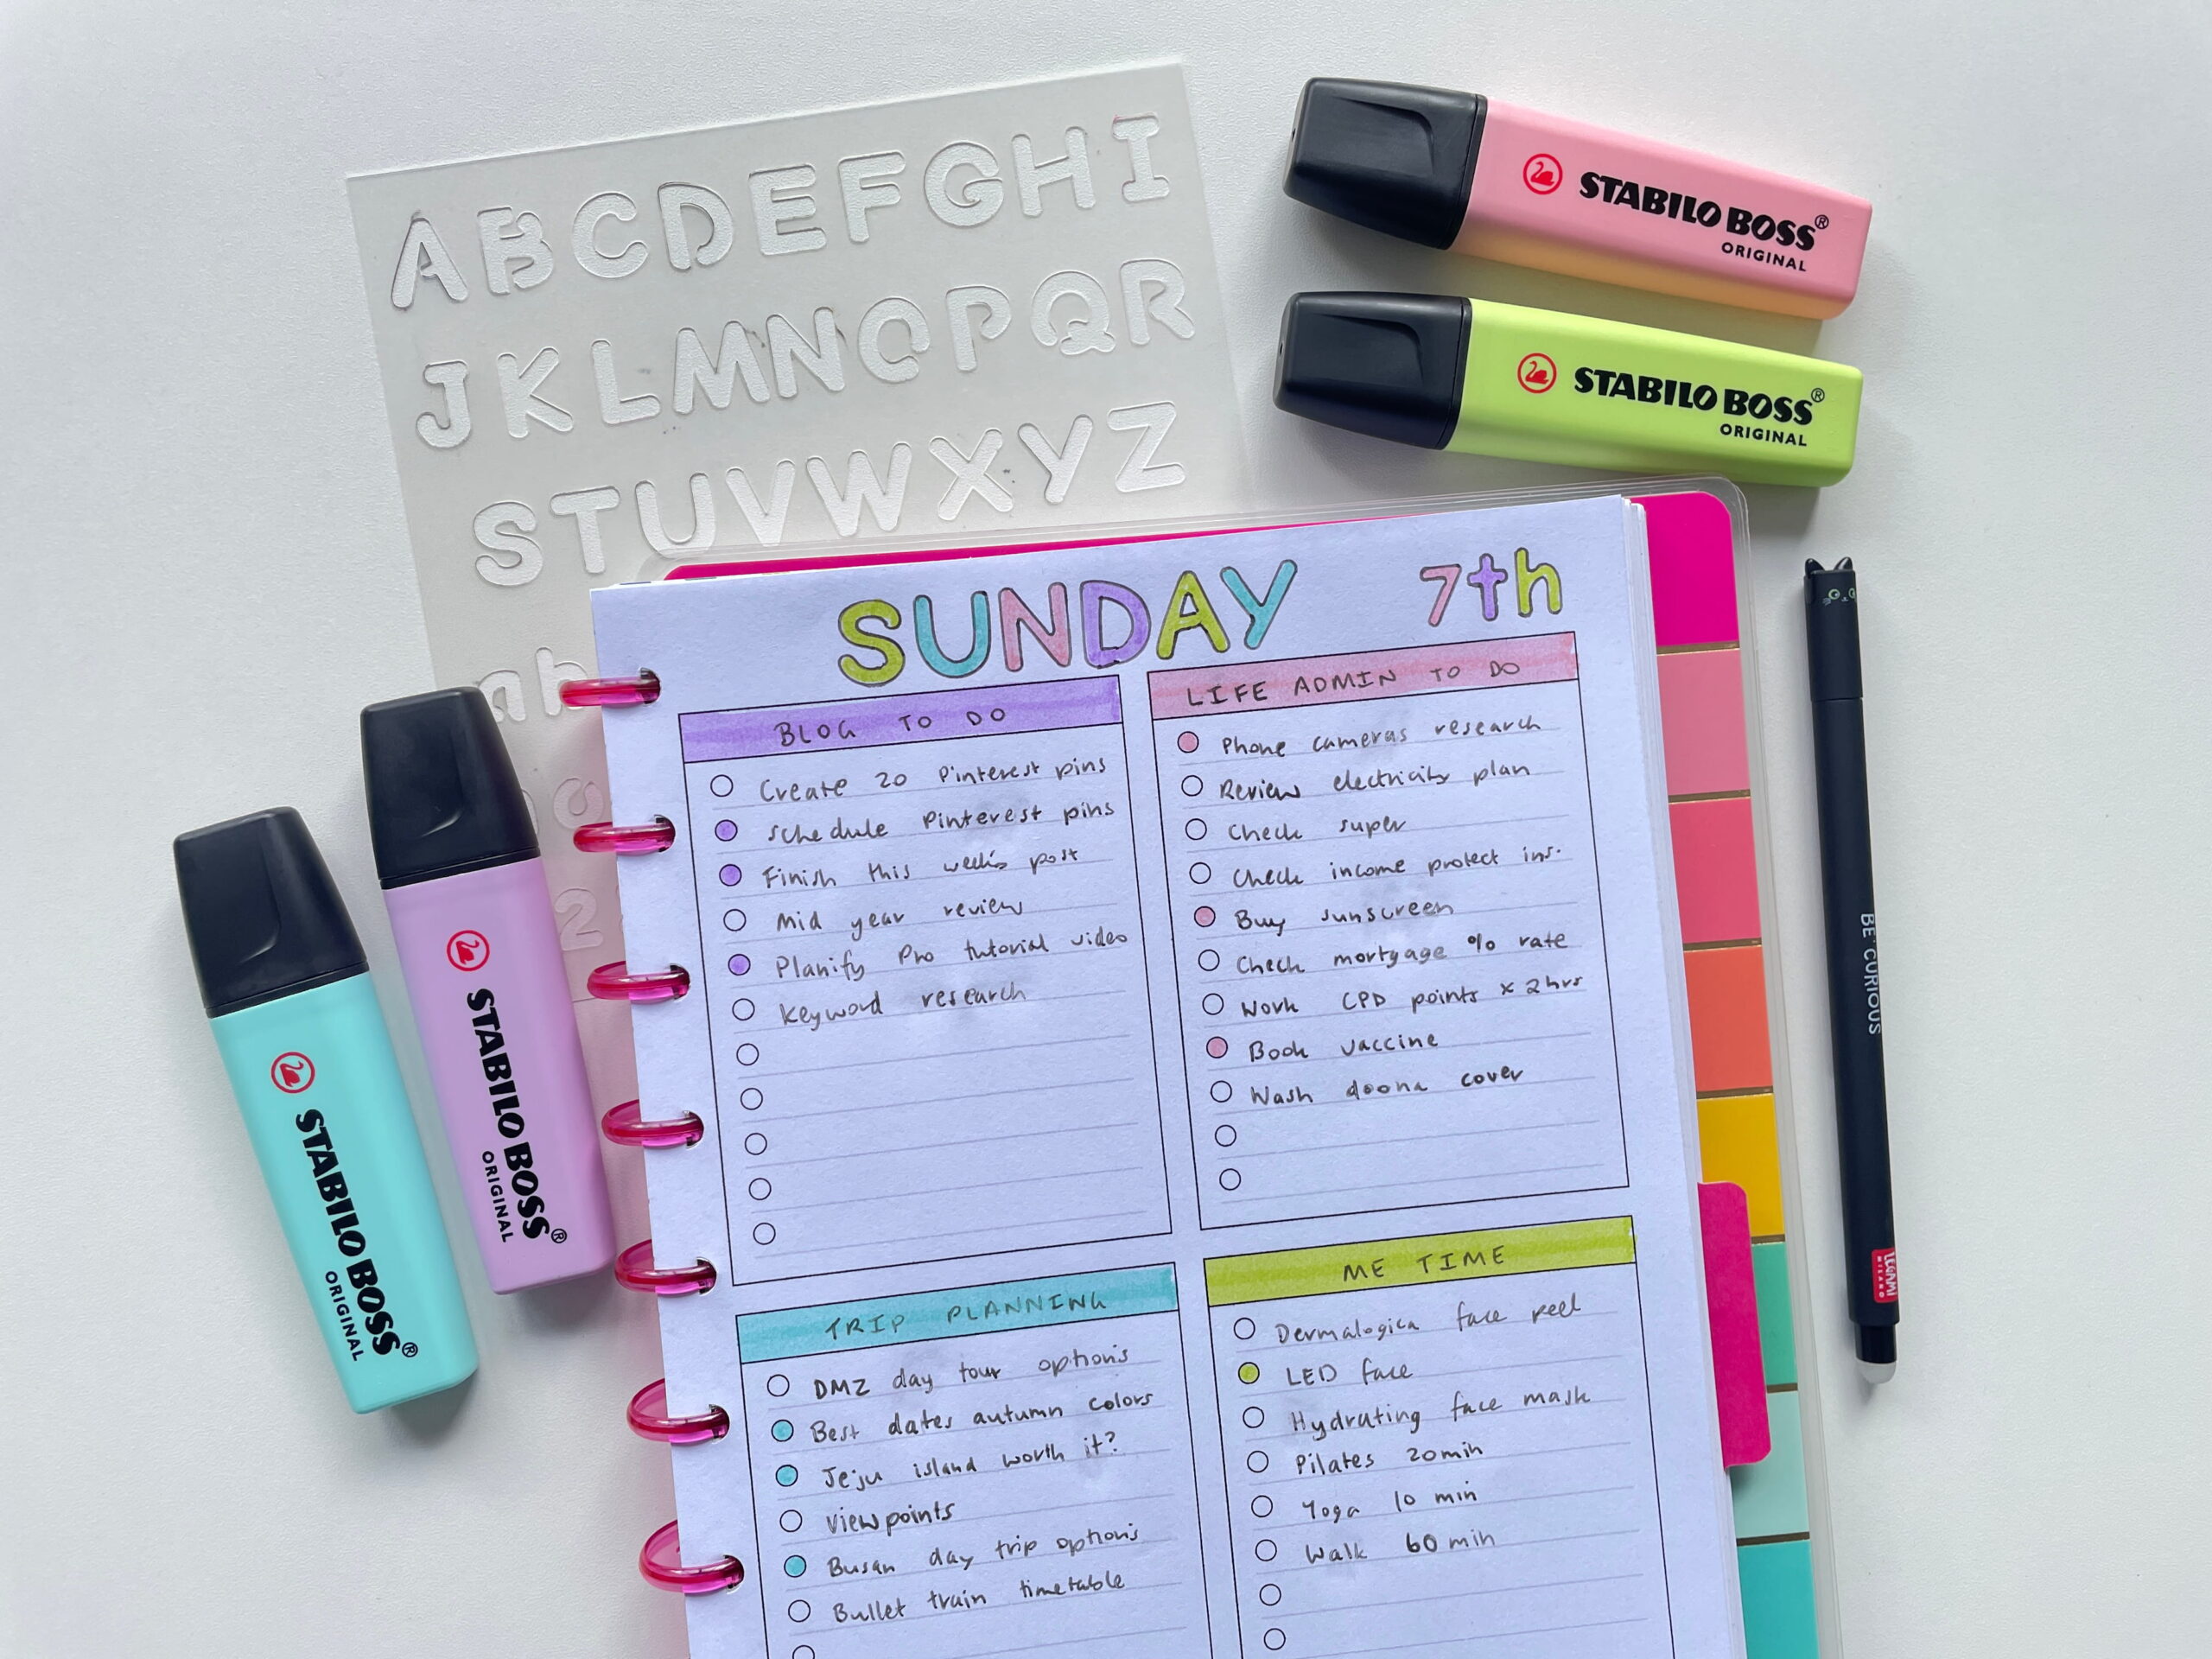 ABCDEFGHI
JKLMNOPQR
STUVWXYZ
ab
2
STABILO BOSS®
ORIGINAL
STABILO BOSS®
ORIGINAL
STABILO BOSS®
ORIGINAL
STABILO BOSS®
ORIGINAL
BE CURIOUS
LEGAMI
MILANO
SUNDAY 7th
BLOG TO DO
Create 20 Pinterest pins
Schedule Pinterest pins
Finish this week's post
Mid year review
Planify Pro tutorial video
Keyword research
LIFE ADMIN TO DO
Phone cameras research
Review electricity plan
Check super
Check income protect ins.
Buy sunscreen
Check mortgage % rate
Work CPD points x 2hrs
Book vaccine
Wash doona cover
TRIP PLANNING
DMZ day tour options
Best dates autumn colors
Jeju island worth it?
Viewpoints
Busan day trip options
Bullet train timetable
ME TIME
Dermalogica face peel
LED face
Hydrating face mask
Pilates 20min
Yoga 10 min
Walk 60 min